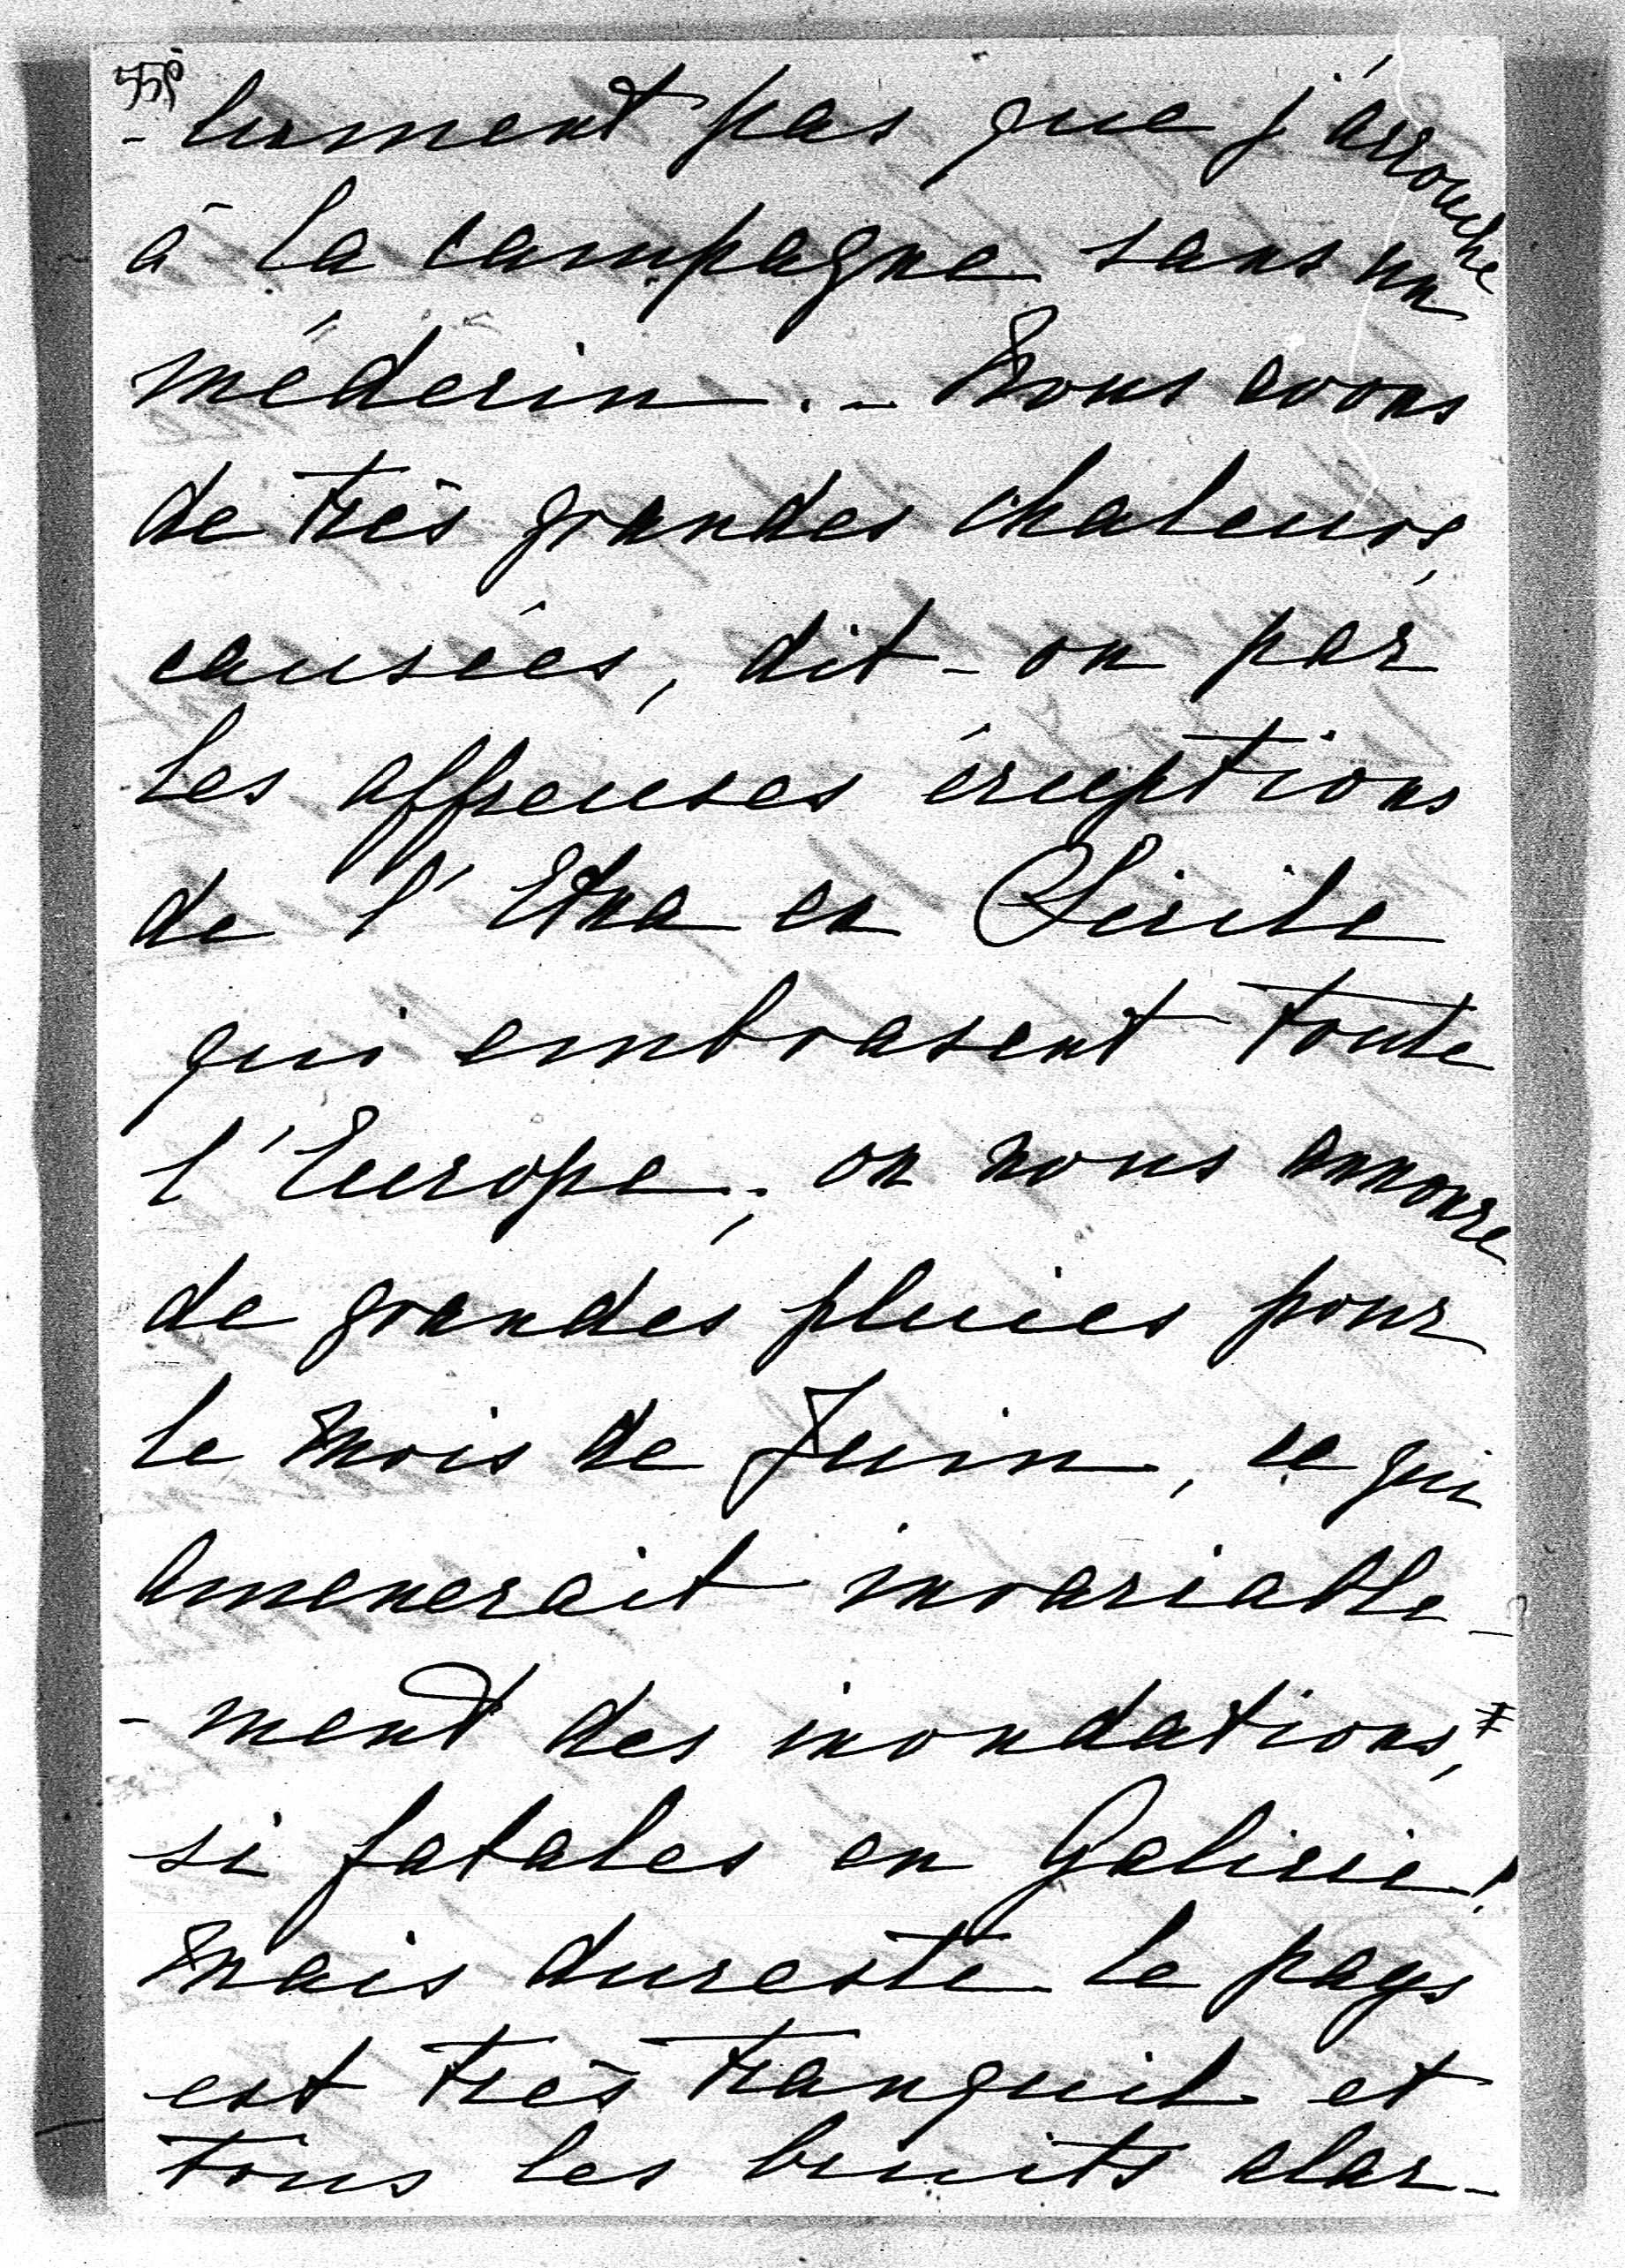 55
-lument pas que j'accouche
à la campagne sans un
médecin. - Nous avons
de très grandes chaleurs,
causées, dit-on par
les affreuses éruptions
de l'Etna en Sicile
qui embrasent toute
l'Europe; on nous annonce
de grandes pluies pour
le mois de Juin, ce qui
amenerait invariable-
-ment des inondations,
si fatales en Galicie!
Mais dureste le pays
est très tranquil et
tous les bruits alar-